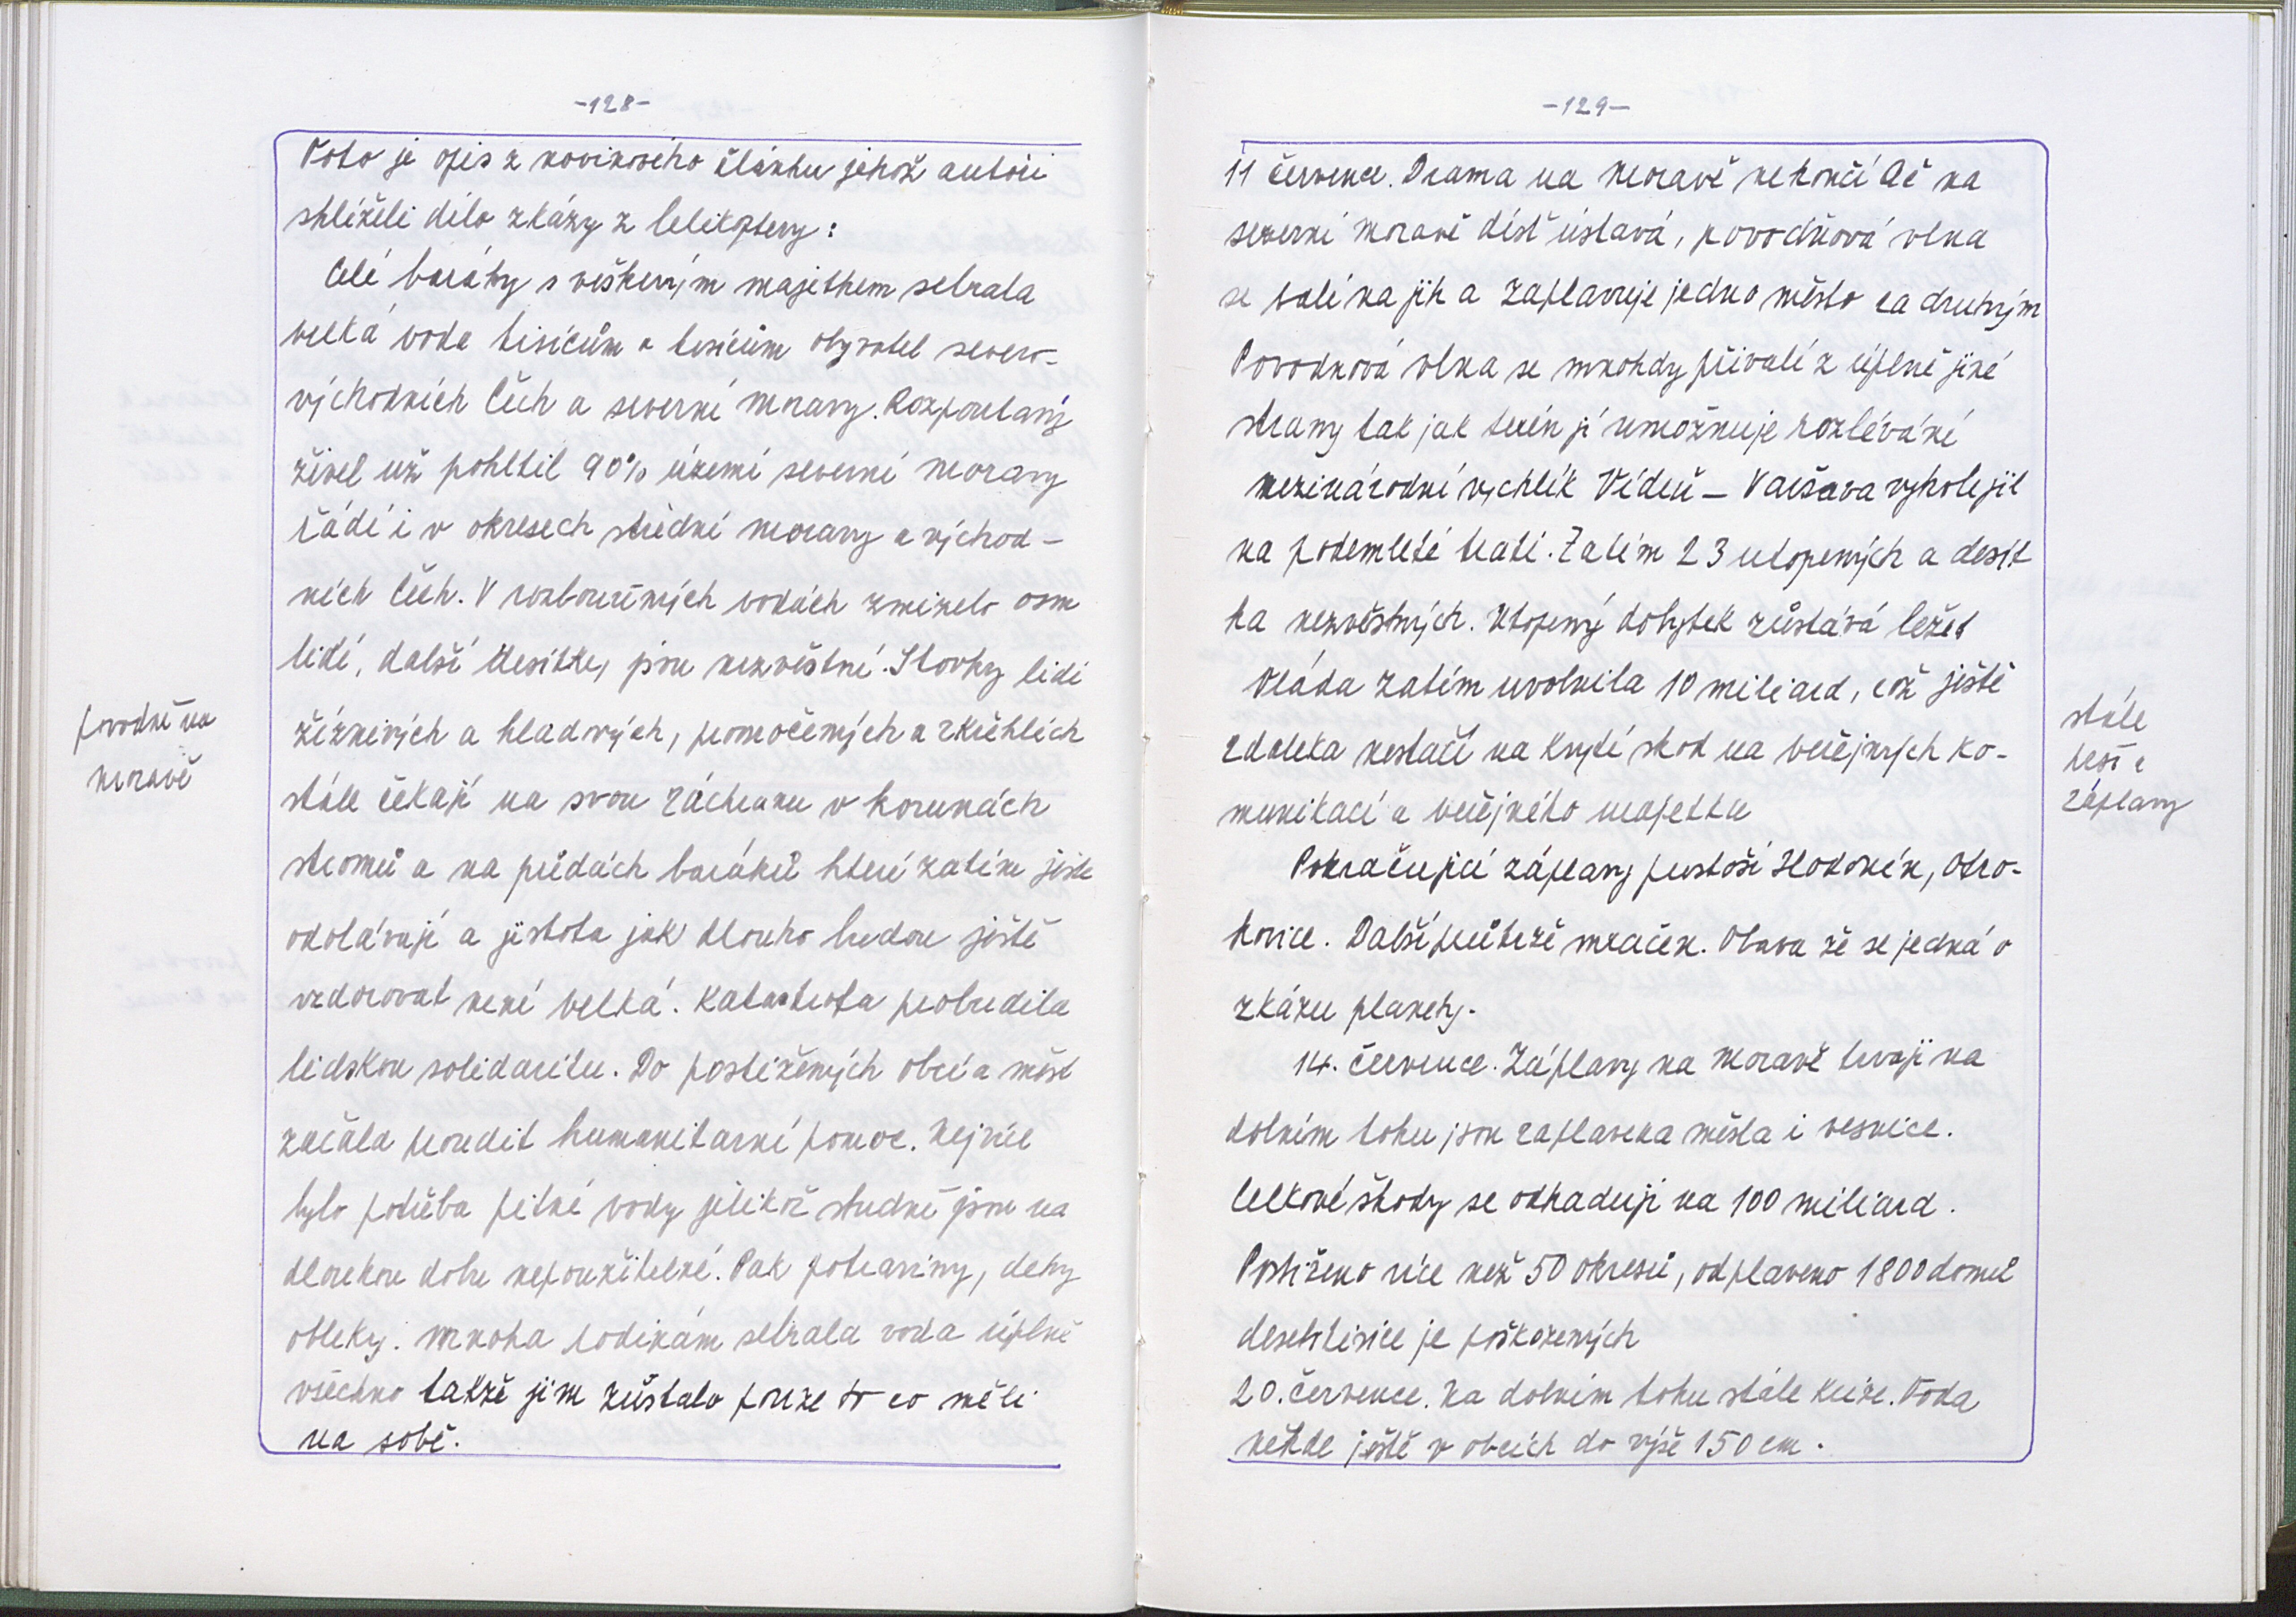 -128-
Toto je opis z novinového článku jehož autoři
shlíželi dílo zkázy z helikoptery:
Celé baráky s veškerým majetkem sebrala
velká voda tisícům a tisícům obyvatel severo-
východních Čech a severní Moravy. Rozpoutaný
živel už pohltil 90% území severní Moravy
řádí i v okresech střední Moravy a východ-
ních Čech. V rozbouřených vodách zmizelo osm
lidí, další desítky jsou nezvěstné. Stovky lidí
žíznivých a hladových, promočených a zkřehlých
stále čekají na svou záchranu v korunách
stromů a na půdách baráků které zatím ještě
odolávají a jistota jak dlouho budou ještě
vzdorovat není velká. Katastrofa probudila
lidskou solidaritu. Do postižených obcí a měst
začala proudit humanitarní pomoc. Nejvíce
bylo potřeba pitné vody jelikož studně jsou na
dlouhou dobu nepoužitelné. Pak potraviny, deky
obleky. Mnoha rodinám sebrala voda úplně
všechno takže jim zůstalo pouze to co měli
na sobě.
povodně na
Moravě
-129-
11 července. Drama na Moravě nekončí Ač na
severní Moravě déšť ústavá, povodňová vlna
se valí na jih a zaplavuje jedno město za druhým
Povodnová vlna se mnohdy přivalí z úplně jiné
strany tak jak terén jí umožnuje rozlévání
Mezinárodní rychlík Vídeň - Varšava vykolejil
na podemleté trati. Zatím 23 utopených a desít
ka nezvěstných. Utopený dobytek zůstává ležet
Vláda zatím uvolnila 10 miliard, což ještě
zdaleka nestačí na krytí skod na veřejných ko-
munikací a veřejného majetku
Pokračující záplavy pustoší Hodonín, Otro-
kovice. Další průtrže mračen. Obava že se jedná o
zkázu planety.
14. července. Záplavy na Moravě trvají na
dolním toku jsou zaplavena města i vesnice.
Celkové škody se odhadují na 100 miliard.
Postiženo více než 50 okresů, odplaveno 1800 domů
desetitisíce je poškozených
20. července. Na dolním toku stále krize. Voda
někde ještě v obcích do výše 150 cm.
stále
záplavy